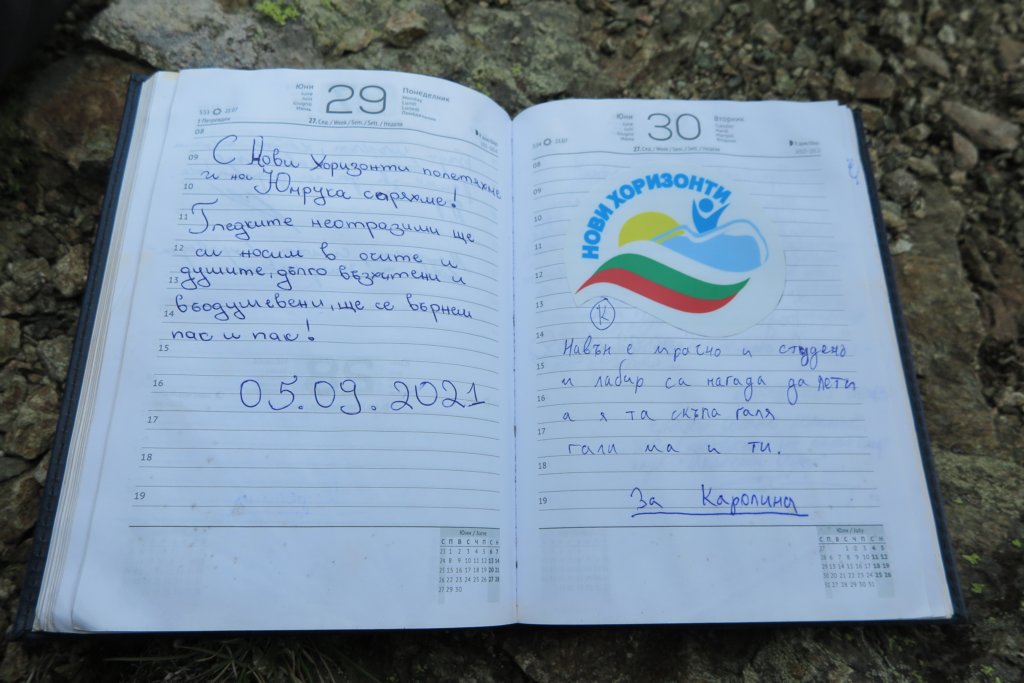 Юни
June
29
Понеделник
Monday
Lundi
27. Сед. / Week / Sem. / Sett. / Неделя
08
С Нови Хоризонти полетяхме
09
и на Юмрука саряхме!
10
11
Гледките неотразими ще
12
си носим в очите и
13
душите, дълго възхитени и
14
въодушевени, ще се върнем
пак и пак!
15
16
05.09.2021
17
18
19
Юни / June
С П В С Ч П С Н
Юни
June
30
Вторник
27. Сед. / Week / Sem. / Sett. / Неделя
08
09
НОВИ ХОРИЗОНТИ
10
11
12
13
К
14
Навън е мрачно и студено
15
и
са
да лети
16
а я та скъпа галя
17
гали ма и ти.
18
19
За Каролина
Юли / July
С П В С Ч П С Н